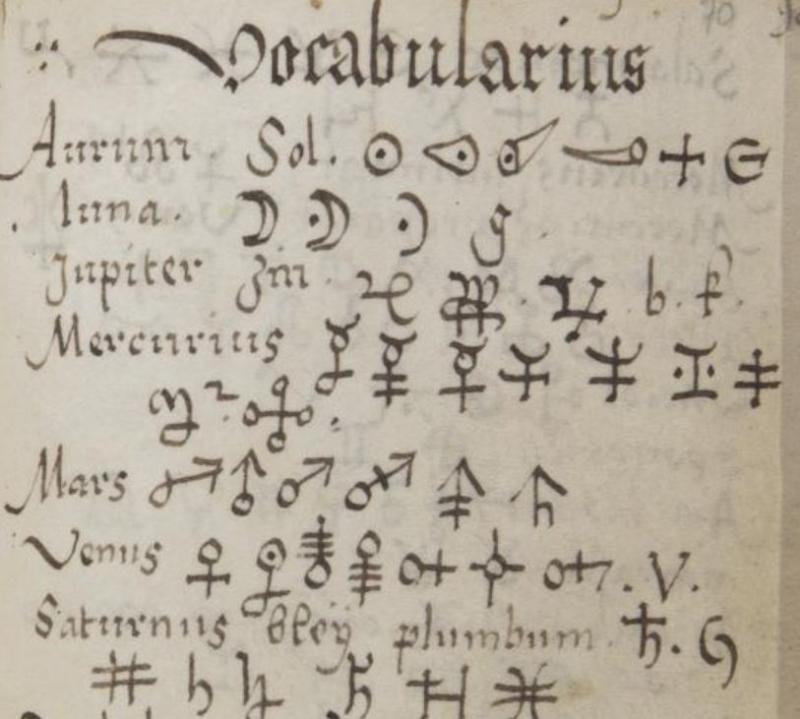 Vocabularius
Aurum Sol. ☉
luna. ☽
Jupiter Zin ♃ b.
Mercurius ☿

Mars ♂
Venus ♀ V.
Saturnus bleÿ plumbum ♄.